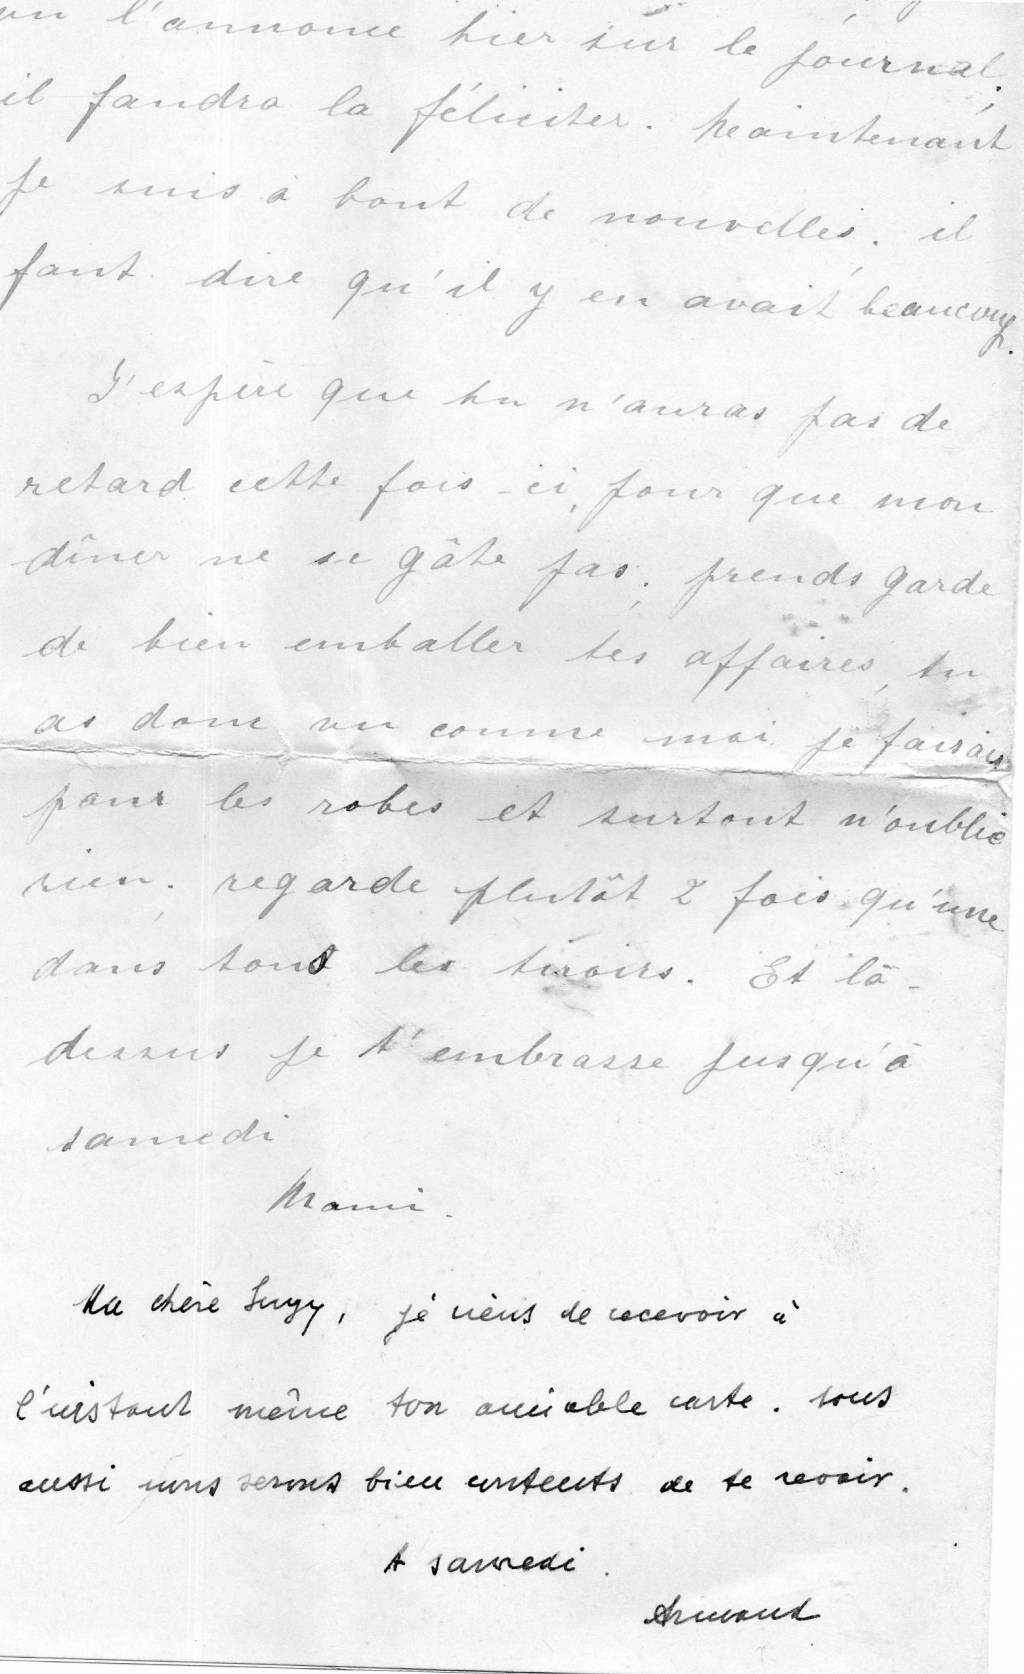 vu l'annonce hier sur le journal,
il faudra la féliciter. Maintenant
je suis à bout de nouvelles. il
faut dire qu'il y en avait beaucoup.
J'espère que tu n'auras pas de
retard cette fois-ci, pour que mon
dîner ne se gâte pas; prends garde
de bien emballer tes affaires, tu
as donc vu comme moi je faisais
pour les robes et surtout n'oublie
rien. regarde plutôt 2 fois qu'une
dans tous les tiroirs. Et là-
dessus je t'embrasse jusqu'à
samedi
Mami.
Ma chère Suzy, je viens de recevoir à
l'instant même ton aimable carte. nous
aussi nous serons bien contents de te revoir.
A samedi.
Armand